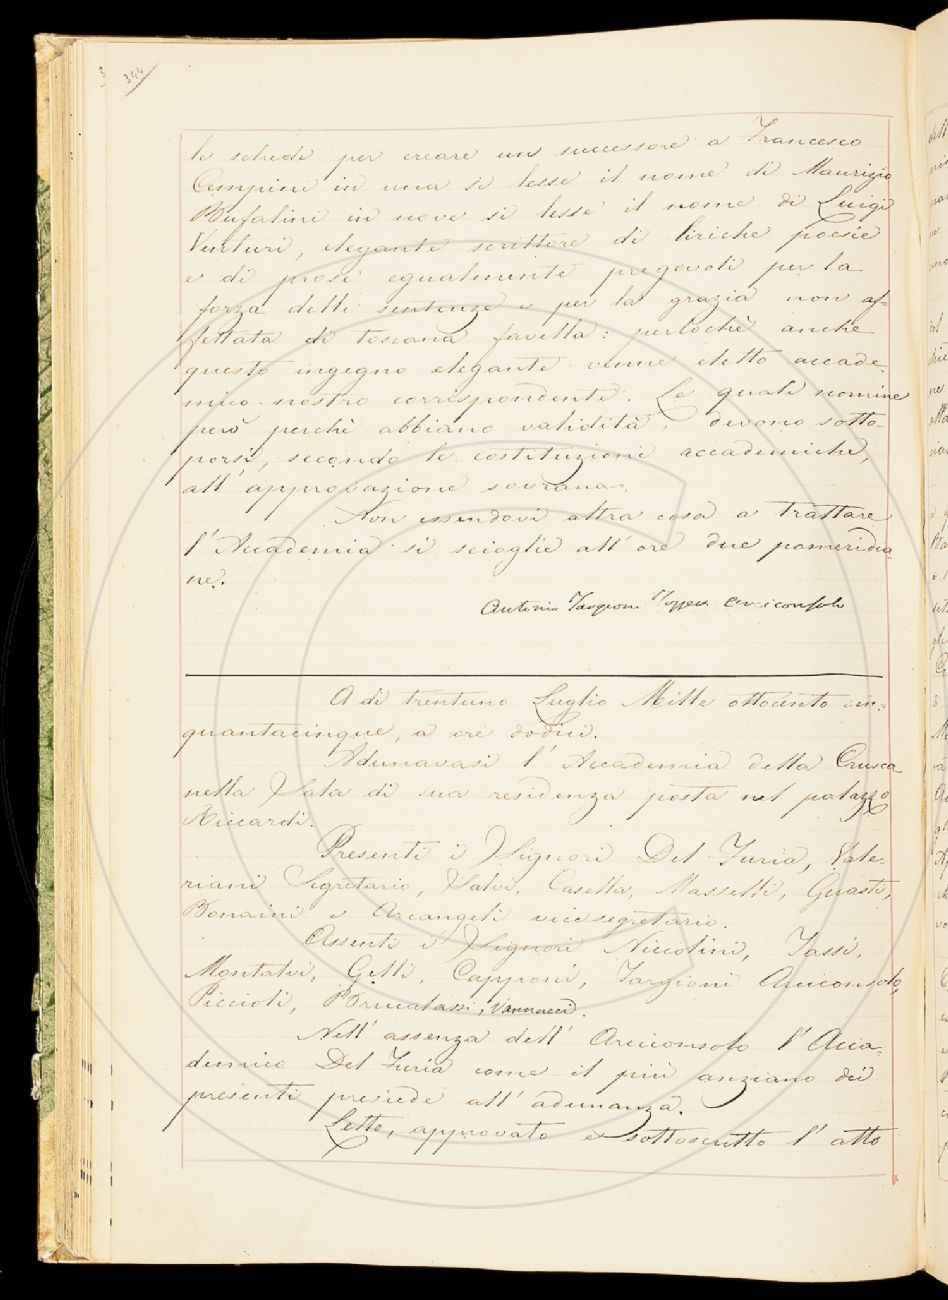 344
le schede per creare un successore a Francesco
Cempini in una si lesse il nome di Maurizio
Bufalini in nove si lesse il nome di Luigi
Venturi, elegante scrittore di liriche poesie
e di prose egualmente pregevoli per la
forza delle sentenze e per la grazia non af=
fettata di toscana favella: perlochè anche
questo ingegno elegante venne eletto accade=
mico nostro corrispondente. Le quali nomine
però perchè abbiano validità, devono sotto=
porsi, secondo le costituzioni accademiche,
all'approvazione sovrana.
Non essendovi altra cosa a trattare
l'Accademia si scioglie all'ore due pomeridia=
ne.
Antonio Targioni Tozzetti Arciconsolo
A dì trentuno Luglio Mille ottocento cin=
quantacinque, a ore dodici.
Adunavasi l'Accademia della Crusca
nella Sala di sua residenza posta nel palazzo
Riccardi.
Presenti i Signori Del Furia, Vale=
riani Segretario, Salvi, Casella, Masselli, Guasti,
Bonaini e Arcangeli vicesegretario.
Assenti i Signori Niccolini, Tassi,
Montalvi, Gelli, Capponi, Targioni Arciconsolo,
Piccioli, Brucalassi, Vannucci.
Nell'assenza dell'Arciconsolo l'Acca=
demico Del Furia come il più anziano dei
presenti presiede all'adunanza.
Letto, approvato e sottoscritto l'atto